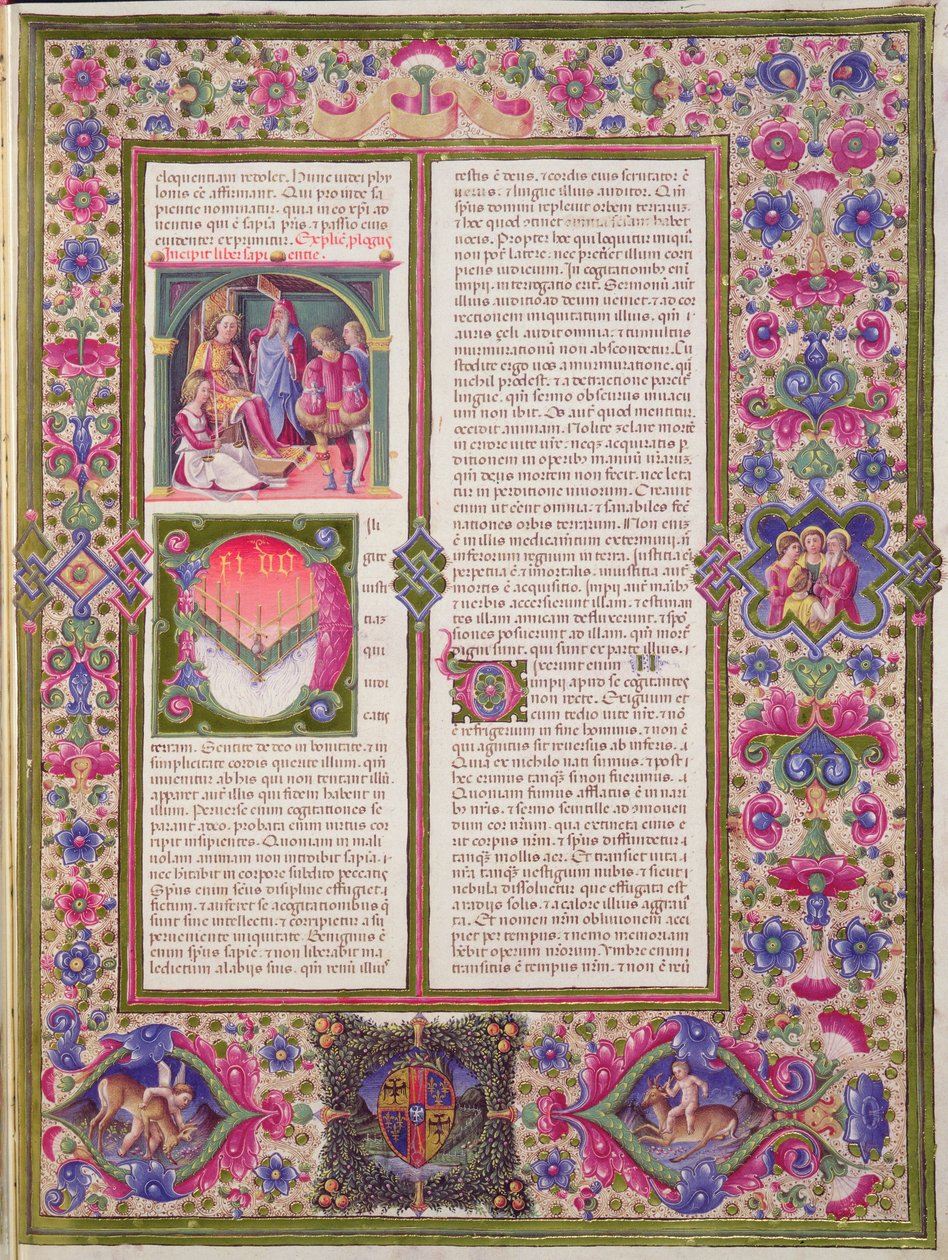 eloquentiam redolet. Hunc iudei phy
lonis eē affirmant. Qui proinde sa
pientie nominatur. quia in eo xp̄i ad
uentus qui ē sapīa pr̄is. ⁊ passio eius
euidenter exprimitur. Explic̄. plogus
Incipit liber sapientie.
FIDO
Dili
gite
iusti
tiaz
qui
iudi
catis
terram. Sentite de deo in bonitate. ⁊ in
simplicitate cordis querite illum. qm̄
inuenitur ab his qui non tentant illū.
apparet aut̄ illis qui fidem habent in
illum. Peruerse enim cogitationes se
parant a deo. probata enim uirtus cor
ripit insipientes. Quoniam in mali
uolam animam non introibit sapīa.
nec hītabit in corpore subdito peccatis
Sp̄us enim sc̄us discipline effugiet
fictum. ⁊ auferet se a cogitationibus q̄
sunt sine intellectu. ⁊ corripietur a su
perueniente iniquitate. Benignus ē
enim sp̄us sapīe. ⁊ non liberabit ma
ledictum a labijs suis. qm̄ renū illius
testis ē deus. ⁊ cordis eius scrutator ē
uerus. ⁊ lingue illius auditor. Qm̄
sp̄us domini repleuit orbem terrarum.
⁊ hoc quod 9tinet omnia sciam habet
uocis. Propter hoc qui loquitur iniqū.
non pot̄ latere. nec preteriet illum corri
piens iudicium. In cogitationibꝰ eni
impij. interrogatio erit. Sermonū aut̄
illius auditio ad deum ueniet. ⁊ ad cor
rectionem iniquitatum illius. qm̄
auris çeli audit omnia. ⁊ tumultus
murmurationū non abscondetur. Cu
stodite ergo uos a murmuratione. q̄
nichil prodest. ⁊ a detractione parcite
lingue. qm̄ sermo obscurus in uacu
um non ibit. Os aut̄ quod mentitur.
occidit animam. Nolite zelare mortē
in errore uite ur̄e. neqꝫ acquiratis p̱
ditionem in operibꝰ manuū ur̄arum.
qm̄ deus mortem non fecit. nec leta
tur in perditione uiuorum. Creauit
enim ut eēnt omnia. ⁊ sanabiles fec̄
nationes orbis terrarum. Non enim
ē in illis medicam̄tum exterminij. n̄
inferorum regnum in terra. Iusticia en̄
perpetua ē. ⁊ īmortalis. iniustitia aut̄
mortis ē acquisitio. Impij aut̄ manibꝰ
⁊ uerbis accersierunt illam. ⁊ estiman
tes illam amicam defluxerunt. ⁊ spō
siones posuerunt ad illam. qm̄ mortē
digni sunt. qui sunt ex parte illius.
Dixerunt enim II
impij apud se cogitantes
non recte. Exiguum et
cum tedio uite nr̄e. ⁊ nō
ē refrigerium in fine hominis. ⁊ non ē
qui agnitus sit reuersus ab inferis.
Quia ex nichilo nati sumus. ⁊ post
hec erimus tanqꝫ si non fuerimus.
Quoniam fumus afflatus ē in nari
bꝰ nr̄is. ⁊ sermo scintille ad 9mouen
dum cor nr̄um. qua extincta cinis e
rit corpus nr̄m. ⁊ sp̄us diffundetur
tanqꝫ mollis aer. Et transiet uita
nr̄a tanqꝫ uestigium nubis. ⁊ sicut
nebula dissoluetur que effugata est
a radijs solis. ⁊ a calore illius aggraua
ta. Et nomen nr̄m obliuionem acci
piet per tempus. ⁊ nemo memoriam
hēbit operum nr̄orum. Umbre enim
transitus ē tempus nr̄m. ⁊ non ē reū